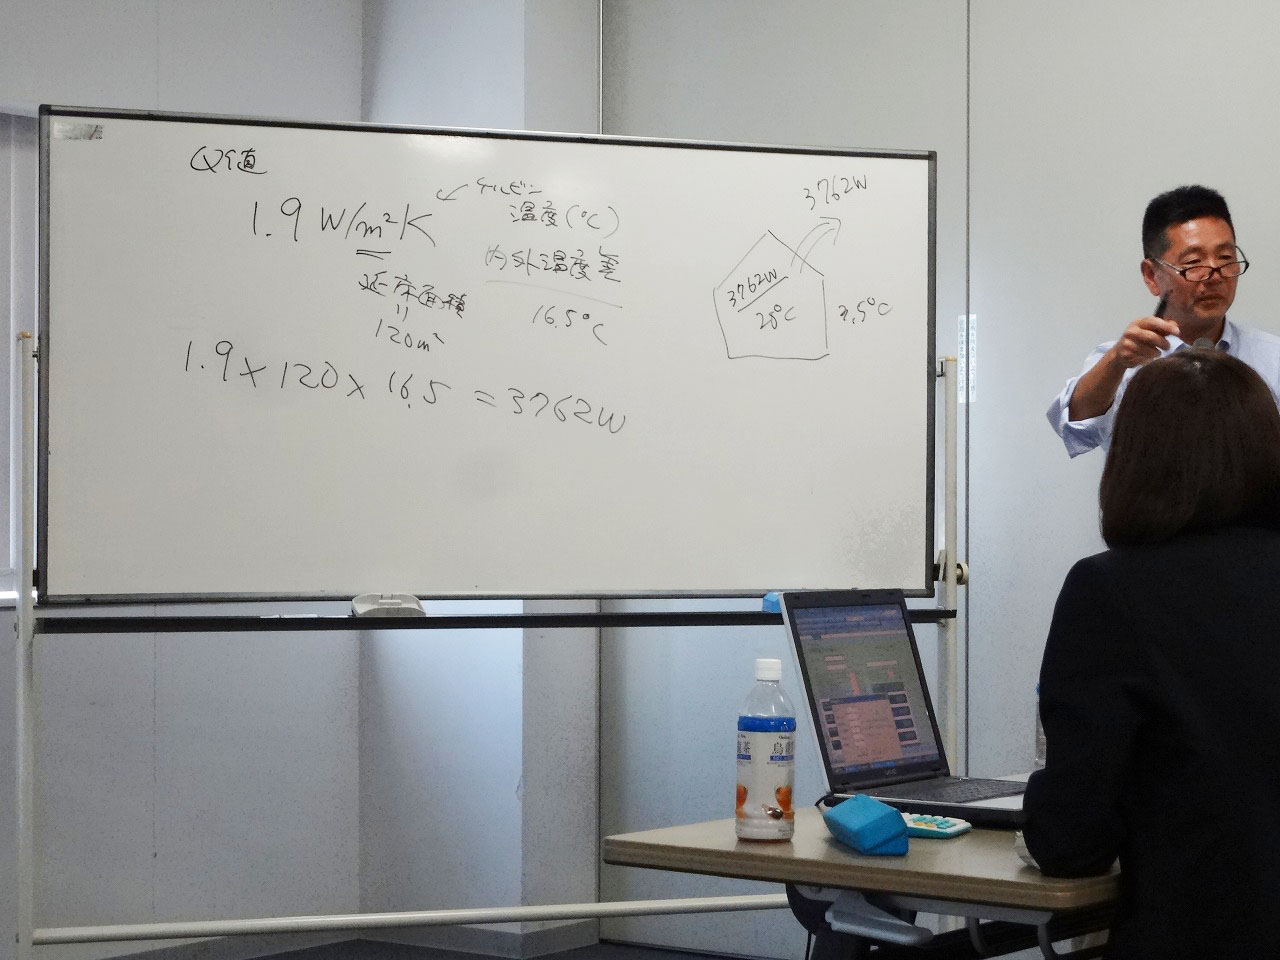 Q値
1.9 W/m²K
ケルビン
温度(℃)
内外温度差
16.5℃
延床面積
=
120m²
1.9 × 120 × 16.5 = 3762W
3762W
3762W
20℃
3.5℃
烏
茶